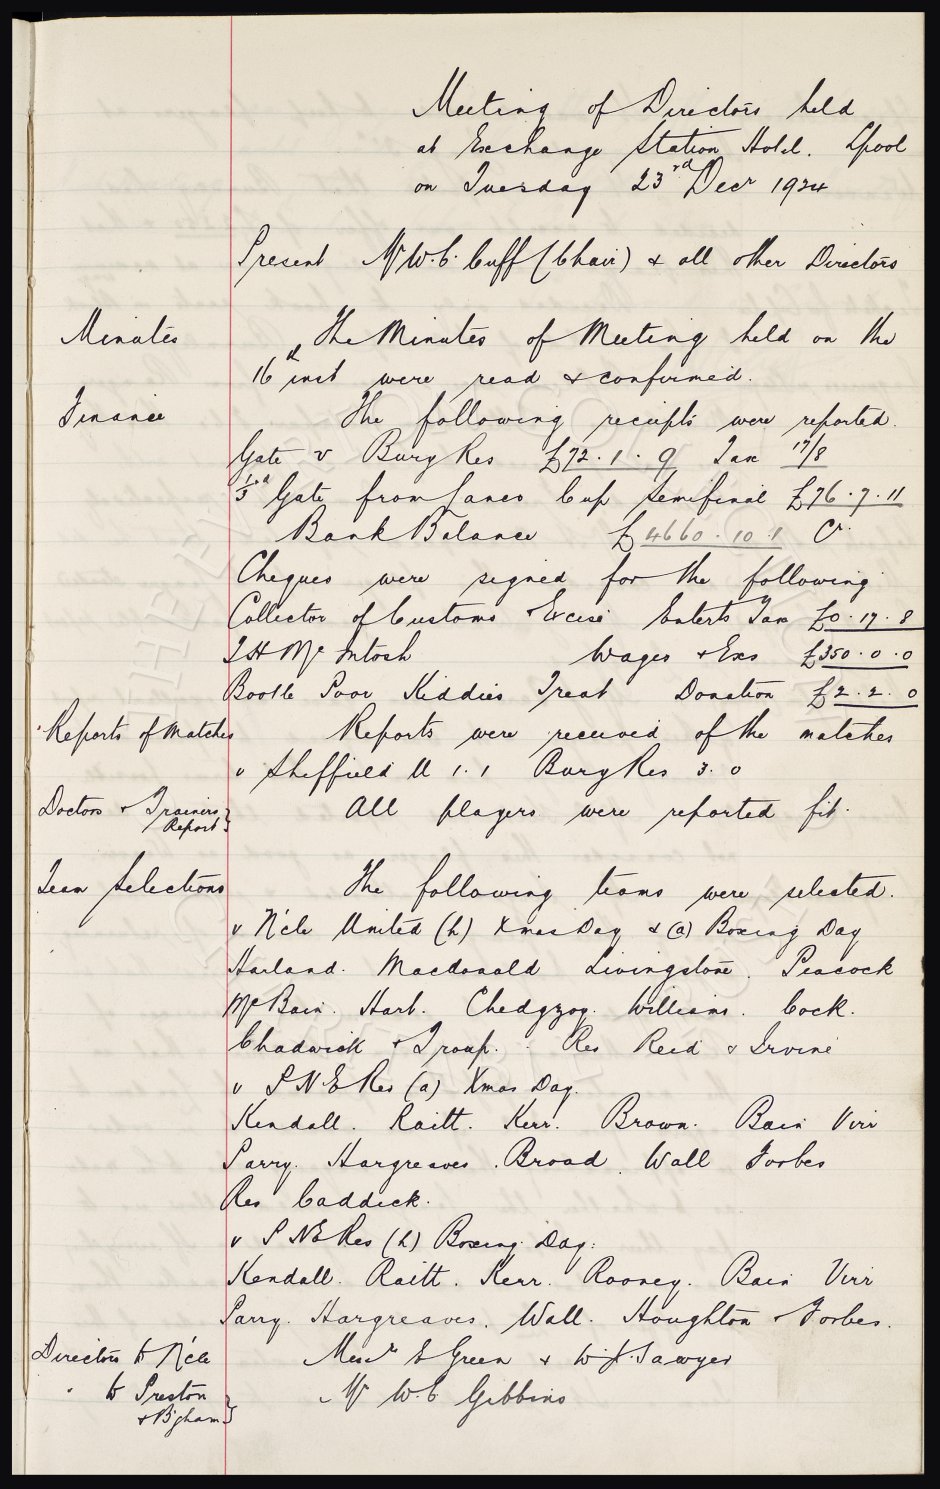 Meeting of Directors held
at Exchange Station Hotel. Lpool
on Tuesday 23rd Decr 1924
Present Mr W.C. Cuff (Chair) & all other Directors
Minutes The Minutes of Meeting held on the
16th inst were read & confirmed.
Finance The following receipts were reported.
Gate v Bury Res £72.1.9 Tax 17/8
1/3rd Gate from Lancs Cup Semifinal £76.7.11
Bank Balance £4660.10.1 Cr.
Cheques were signed for the following
Collector of Customs & Excise Enterts Tax £0.17.8
T H McIntosh Wages & Exs £350.0.0
Bootle Poor Kiddies Treat Donation £2.2.0
Reports of Matches Reports were received of the matches
v Sheffield U 1.1 Bury Res 3.0
Doctors & Trainers All players were reported fit.
Report
Team Selections The following teams were selected.
v N'cle United (h) Xmas Day & (a) Boxing Day
Harland. Macdonald Livingstone. Peacock
McBain. Hart. Chedgzoy. Williams. Cock.
Chadwick & Troup. Res Reid & Irvine
v P N E Res (a) Xmas Day.
Kendall. Raitt. Kerr. Brown. Bain Virr
Parry. Hargreaves. Broad. Wall Forbes
Res Caddick.
v P N E Res (h) Boxing Day.
Kendall. Raitt. Kerr. Rooney. Bain Virr
Parry. Hargreaves. Wall. Houghton & Forbes.
Directors to N'cle Messrs E Green & W.J. Sawyer
" to Preston Mr W.C. Gibbins
& B'gham